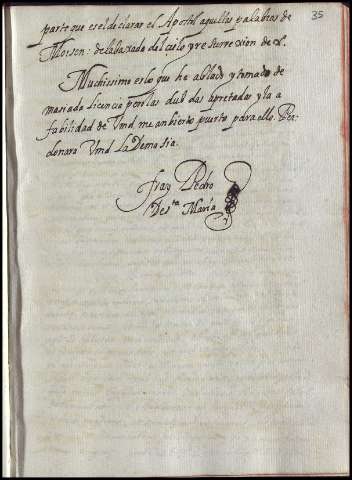 35
parte que es el declarar el Apostol aquellas palabras de
Moisen: de la baxada del cielo y resturrexion de X.
Muchissimo es lo que he ablado y tomado de
masiada licencia pero las dudas apretadas y la a
fabilidad de Vmd me an bierto puerta para ello. Per
donara Vmd La Demasia.
fray Pedro
De s.ta Maria